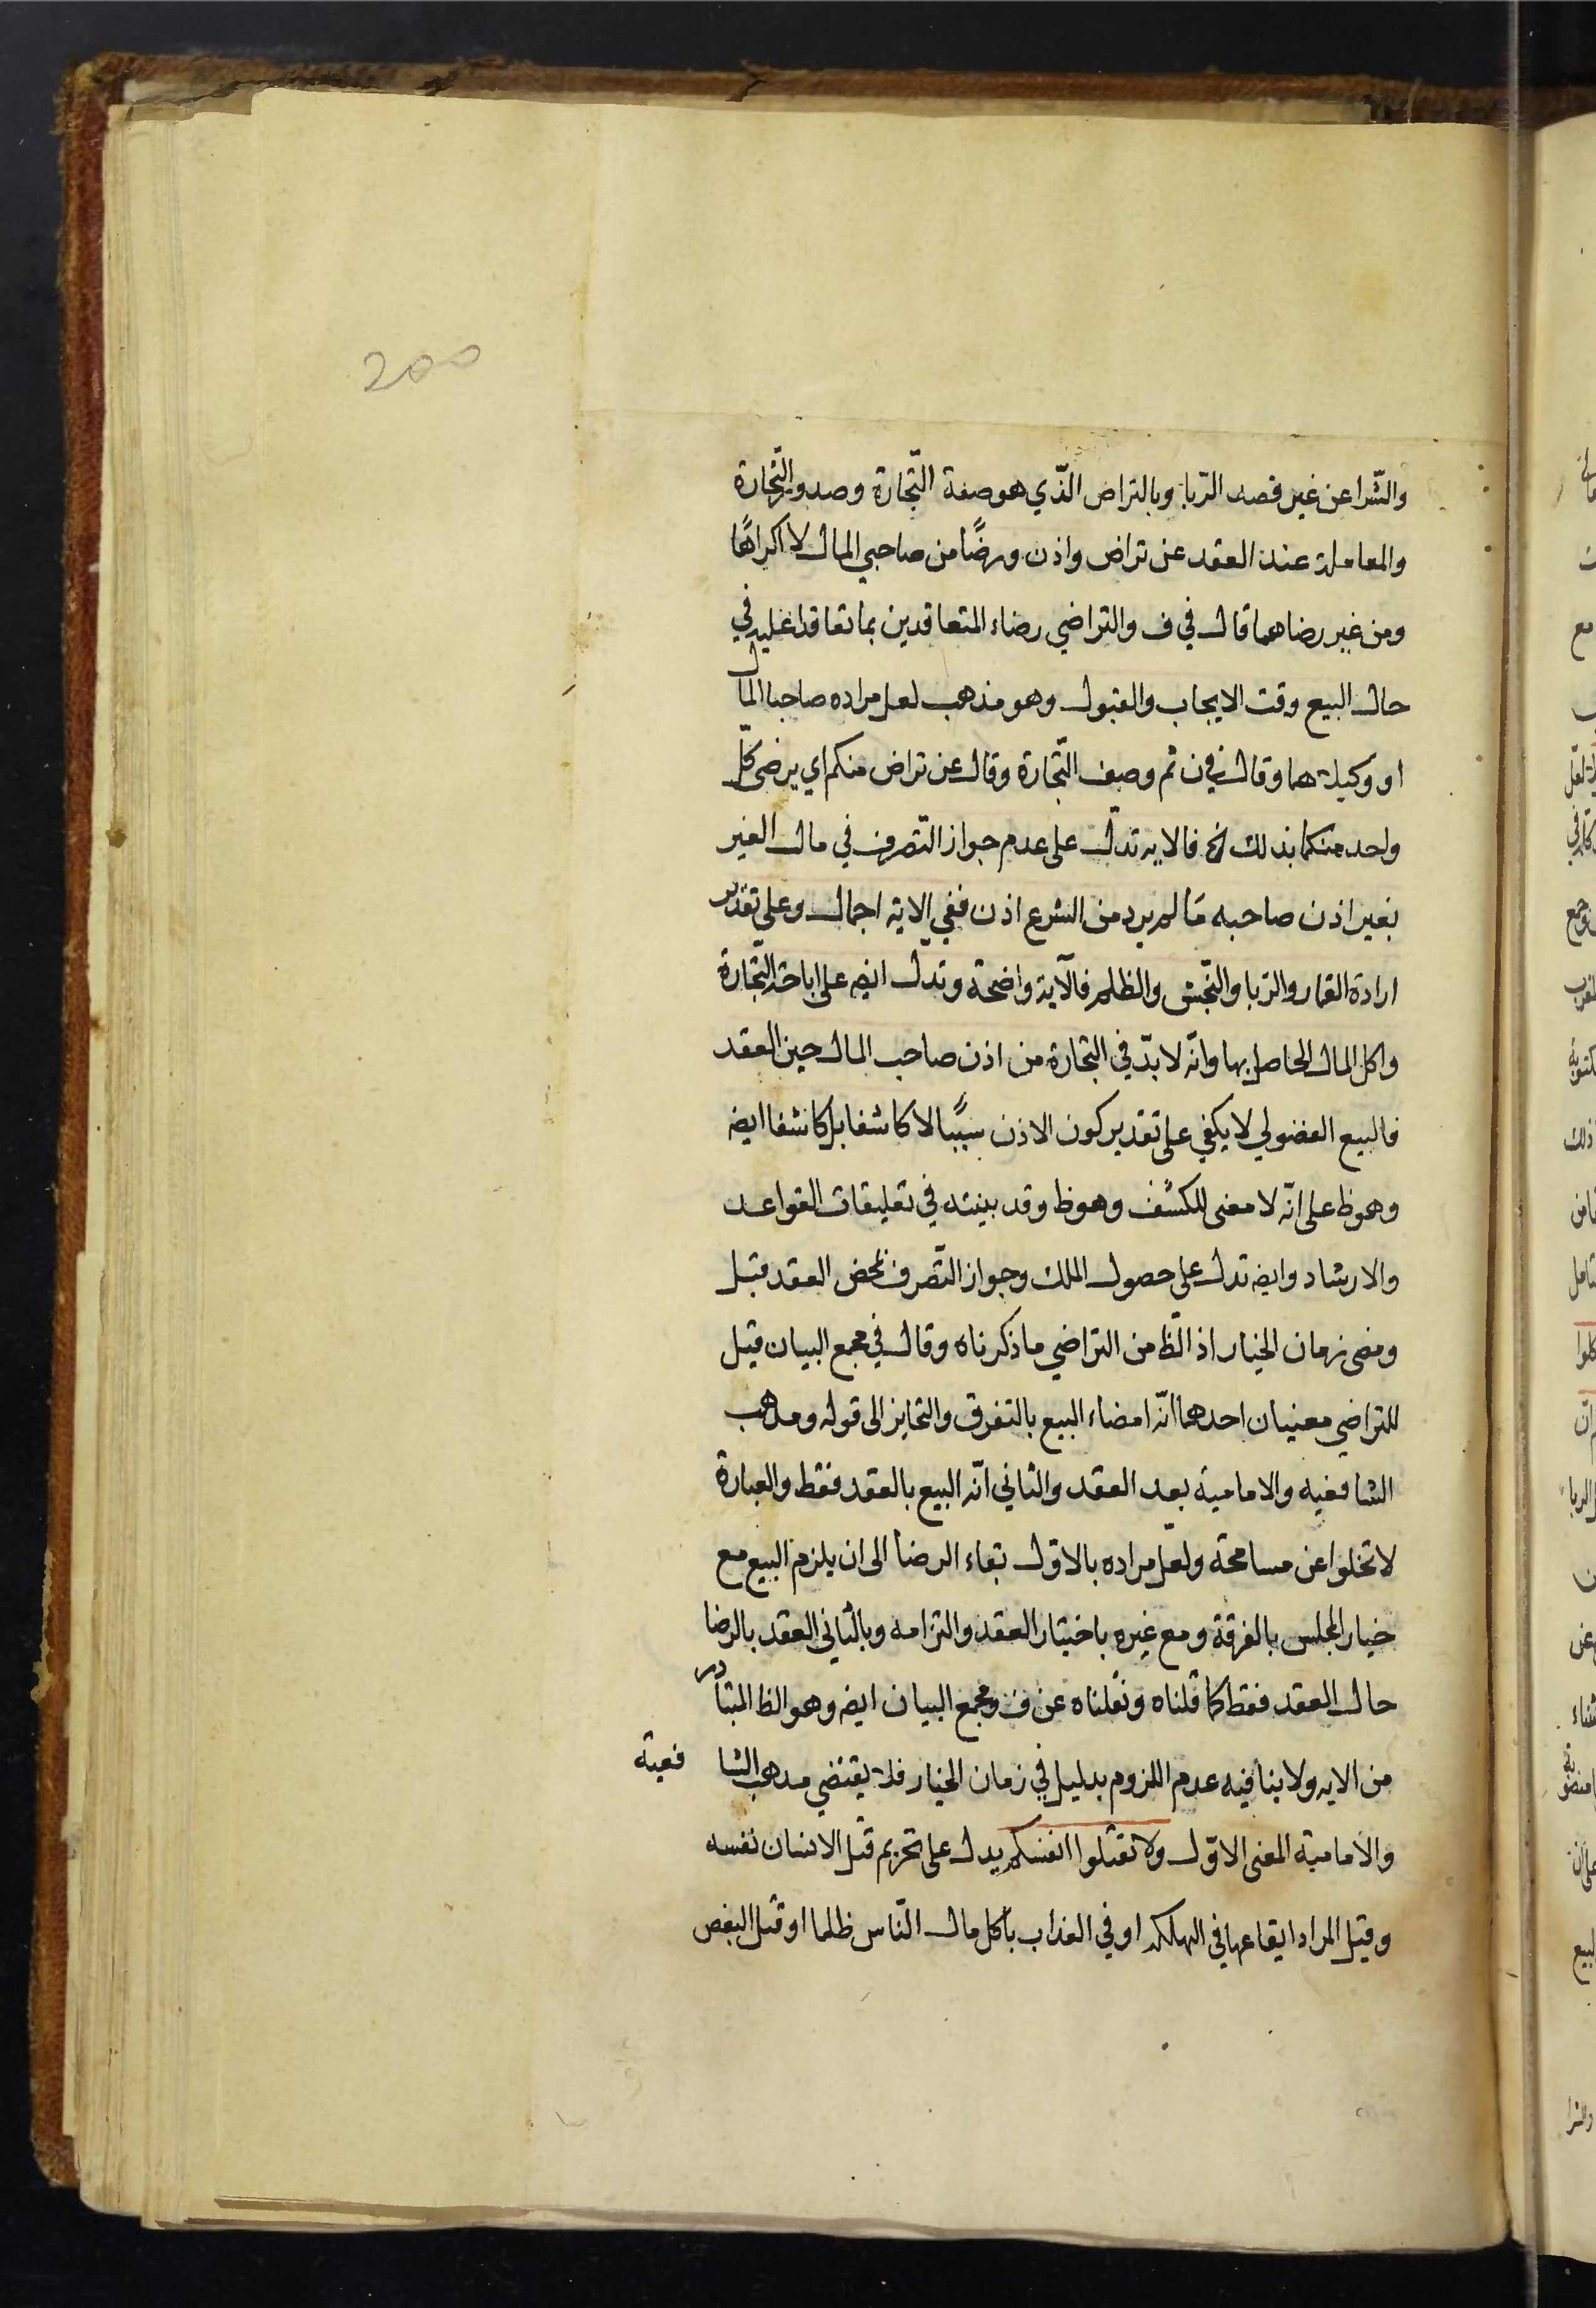 200
والشّرا عن غير قصد الرّبا وبالتراض الّذي هو صفة التّجارة وصدور التّجارة
والمعاملة عند العقد عن تراض واذن ورضًا من صاحبي المال لا اكراهًا
ومن غير رضاهما قال في ف والتراضي رضاء المتعاقدين بما تعاقدا عليه في
حال البيع وقت الايجاب والقبول وهو مذهب لعل مراده صاحبا المال
او وكيلاهما وقال في ن ثم وصف التّجارة وقال عن تراض منكم اي يرضى كلّ
واحد منكما بذلك الخ فالايه تدلّ على عدم جواز التّصرف في مال الغير
بغير اذن صاحبه مَا لم يرد من الشرع اذن ففي الاية اجمال وعلى تقدير
ارادة القمار والربا والنّجش والظلم فالآية واضحة وتدلّ ايضه على اباحة التّجارة
واكل المال الحاصل بها وانّه لا بدّ في التجارة من اذن صاحب المال حين العقد
فالبيع الفضولي لا يكفي على تقدير كون الاذن سببًا لا كاشفا بل كاشفا ايضه
وهوظ على انّه لا معنى للكشف وهوظ وقد بينته في تعليقات القواعد
والارشاد وايضه تدل على حصول الملك وجواز التّصرف بمحض العقد قبل
ومضى زمان الخيار اذ الّظ من التراضي ما ذكرناه وقال في مجمع البيان قيل
للتراضي معنيان احدهما انّه امضاء البيع بالتفرق والتخاير الى قوله ومذهب
الشافعيه والامامية بعد العقد والثاني انّه البيع بالعقد فقط والعبارة
لا تخلوا عن مسامحة ولعل مراده بالاوّل بقاء الرضا الى ان يلزم البيع مع
خيار المجلس بالفرقة ومع غيره باختيار العقد والتزامه وبالثاني العقد بالرضا
حال العقد فقط كما قلناه ونقلناه عن ف ومجمع البيان ايضه وهو الظ المتبادر
من الايه ولا ينافيه عدم اللزوم بدليل في زمان الخيار فلا يقتضي مذهب الشا فعية
والامامية المعنى الاوّل ولا تقتلوا انفسكم يدل على تحريم قتل الانسان نفسه
وقيل المراد ايقاعها في الهلكه او في العذاب باكل مال النّاس ظلما او قتل البعض